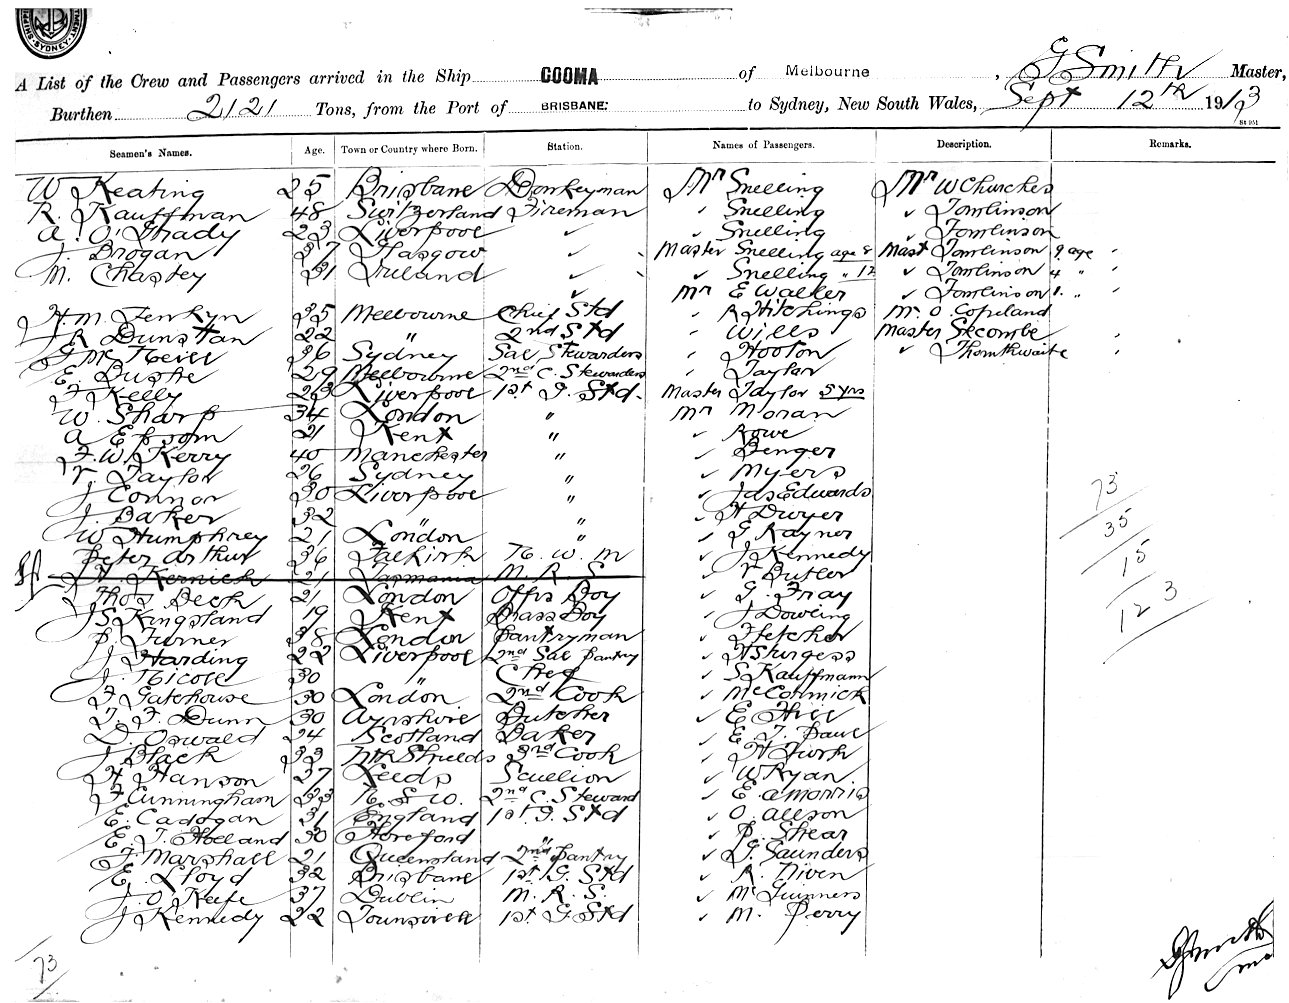 SYDNEY
A List of the Crew and Passengers arrived in the Ship COOMA of Melbourne, G Smith Master,
Burthen 2121 Tons, from the Port of BRISBANE: to Sydney, New South Wales, Sept 12th 1913
Seamen's Names. Age. Town or Country where Born. Station. Names of Passengers. Description. Remarks.
W Keating 25 Brisbane Donkeyman Mr Snelling Mr W Churches
R. Kauffman 48 Switzerland Fireman " Snelling " Tomlinson
A. O'Grady 23 Liverpool " " Snelling " Tomlinson
J. Brogan 37 Glasgow " Master Snelling age 8 Mast Tomlinson 9 age
M. Chastey 31 Ireland " " Snelling " 12 " Tomlinson 4 "
" Mr E Walker " Tomlinson 1. "
H. M. Jenkyn 35 Melbourne Chief Std " R Hitchings Mr. O. Copeland
J R Dunstan 22 " 2nd Std " Wills Master Secombe
G Mc Neill 36 Sydney Sal Stewardess " Hooton " Thornthwaite
E. 29 Melbourne 2nd C. Stewardess " Taylor
F Kelly 23 Liverpool 1st G. Std. Master Taylor 5 yrs
W. Sharp 34 London " Mr Moran
A Epsom 21 Kent " " Rowe
F. W. Kerry 40 Manchester " " Benger
V. Taylor 26 Sydney " " Myers
J Connor 30 Liverpool " " Jas Edwards
J. Baker 32 " " " H Dwyer
W Humphrey 21 London " " G Raynor
Peter Arthur 36 Falkirk N. W. M " J Kennedy
H Kernick 21 Tasmania M. R. S " V Butler
Thos Beck 21 London Offrs Boy " G. Fray
J S Kingsland 19 Kent Brass Boy " J Dowling
B. Turner 38 London Pantryman " Fletcher
J Harding 22 Liverpool 2nd Sal Pantry " H Sturgess
J. Nicole 30 " Chef " S Kauffmann
F Gatehouse 30 London 2nd Cook " McCormick
T. F. Dunn 30 Ayrshire Butcher " E Hill
D Oswald 24 Scotland Baker " E. T. Paul
J Black 33 Nth Shields 3rd Cook " H Turk
H Hanson 27 Leeds Scullion " W Ryan
F Cunningham 33 N. S. W. 2nd C. Steward " E. A Morris
E. Cadogan 31 England 1st G. Std " O. Allson
E. J. Holland 30 Hereford " " P. Shear
J. Marshall 21 Queensland 2nd Pantry " G. Saunders
E. Lloyd 32 Brisbane 1st G. Std " R. Niven
J. O'Keefe 37 Dublin M. R. S. " McGuinners
J Kennedy 22 1st G Std " M. Perry
73
35
15
123
73
G Smith